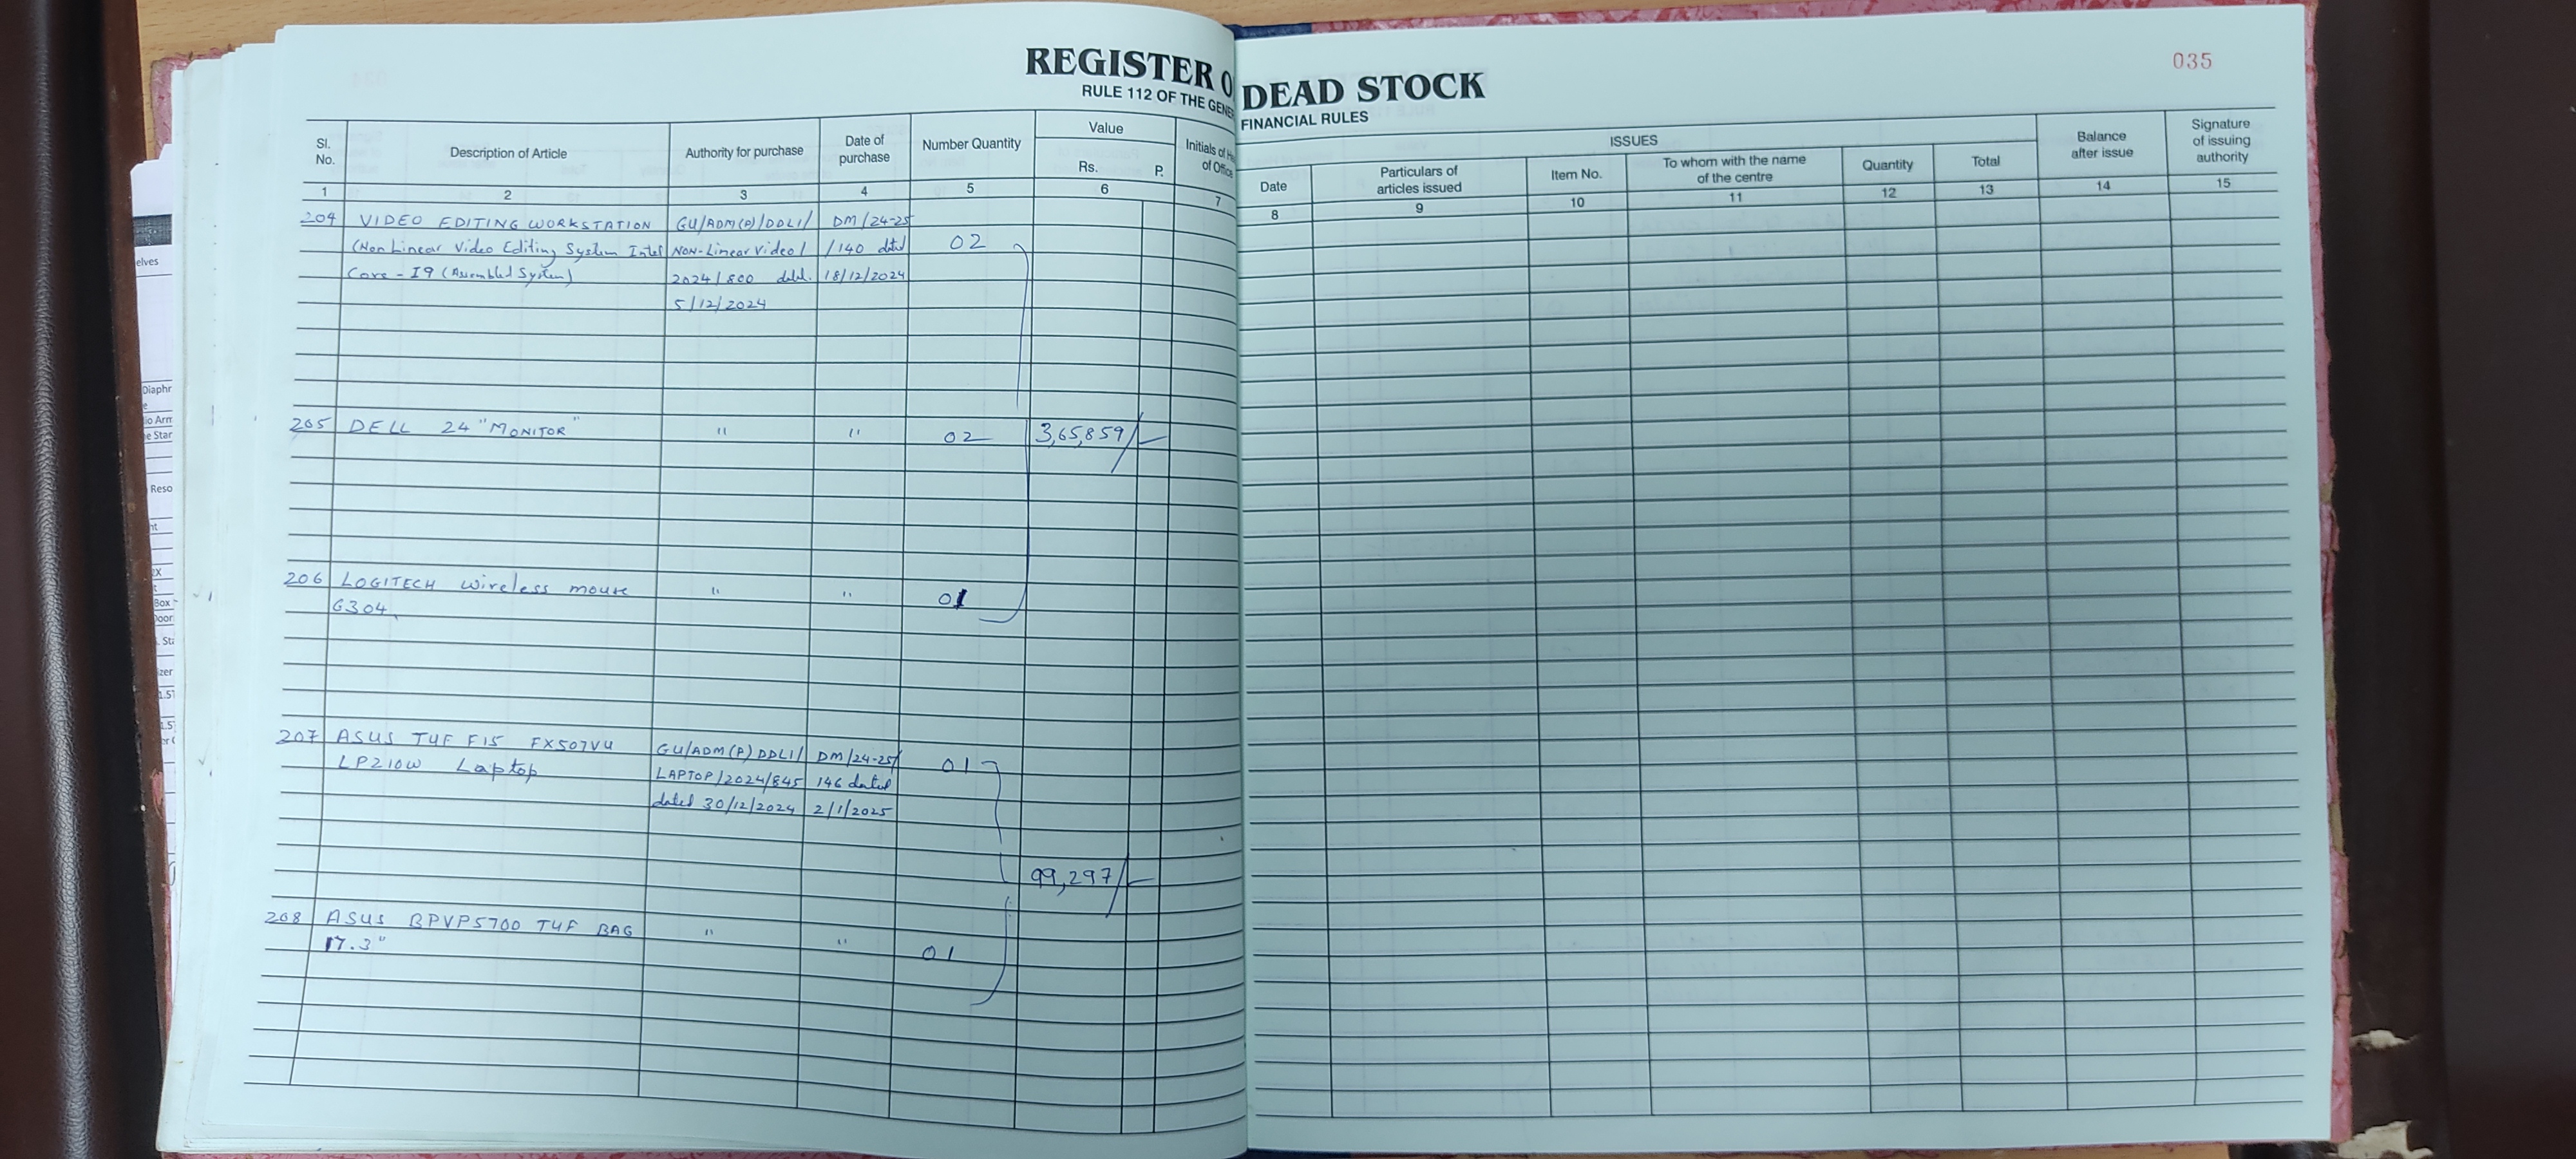 035
REGISTER O DEAD STOCK
RULE 112 OF THE GENE FINANCIAL RULES
Sl. No. Description of Article Authority for purchase Date of purchase Number Quantity Value Rs. P. Initials of of Office
ISSUES
Date Particulars of articles issued Item No. To whom with the name of the centre Quantity Total Balance after issue Signature of issuing authority
1 2 3 4 5 6 7 8 9 10 11 12 13 14 15
204 VIDEO EDITING WORKSTATION GU/ADM(P)/DDLI/ DM/24-25
(Non Linear Video Editing System Intel NON-Linear Video/ /140 dated 02
Core - I9 (Assembled System) 2024/800 dated. 18/12/2024
5/12/2024
205 DELL 24 "MONITOR" " " 02 3,65,859/-
206 LOGITECH wireless mouse " " 01
G304
207 ASUS TUF F15 FX507VU GU/ADM(P)DDLI/ DM/24-25/ 01
LP210W Laptop LAPTOP/2024/845 146 dated
dated 30/12/2024 2/1/2025
99,297/-
208 ASUS BPVP5700 TUF BAG " " 01
17.3"
elves
Diaphr
e
io Arm
e Star
Reso
nt
Box
Door
zer